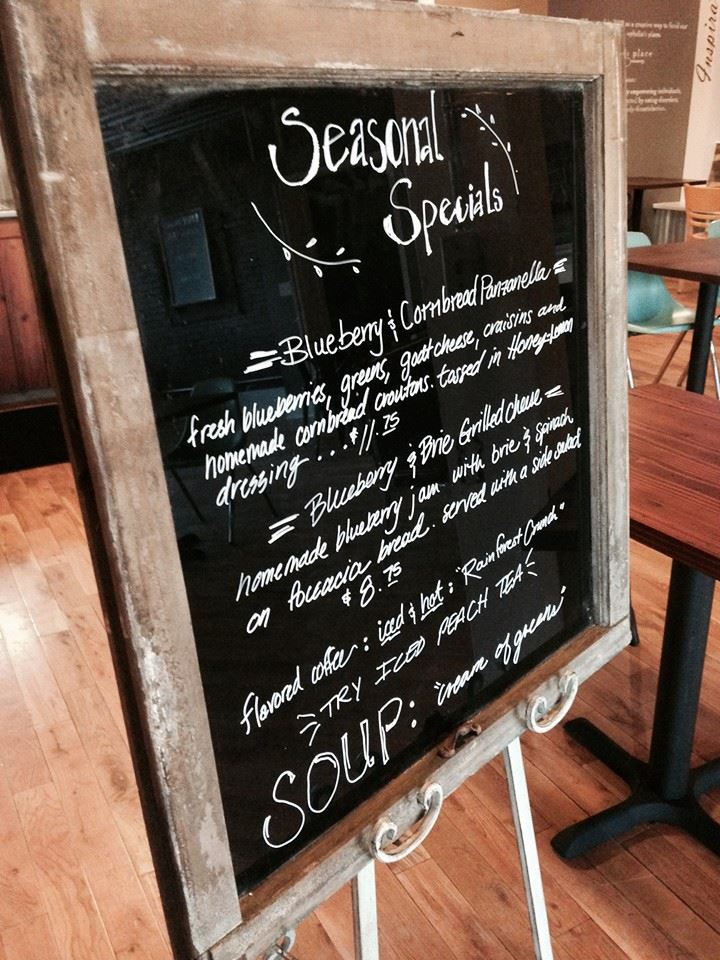 Seasonal
Specials
= Blueberry & Cornbread Panzanella =
fresh blueberries, greens, goat cheese, craisins and
homemade cornbread croutons. tossed in Honey-Lemon
dressing... $11.75
= Blueberry & Brie Grilled Cheese =
homemade blueberry jam with brie & spinach
on foccacia bread. served with a side salad
$8.75
flavored coffee: iced & hot: "Rainforest Crunch"
TRY ICED PEACH TEA
SOUP: "cream of greens"
Inspira
place